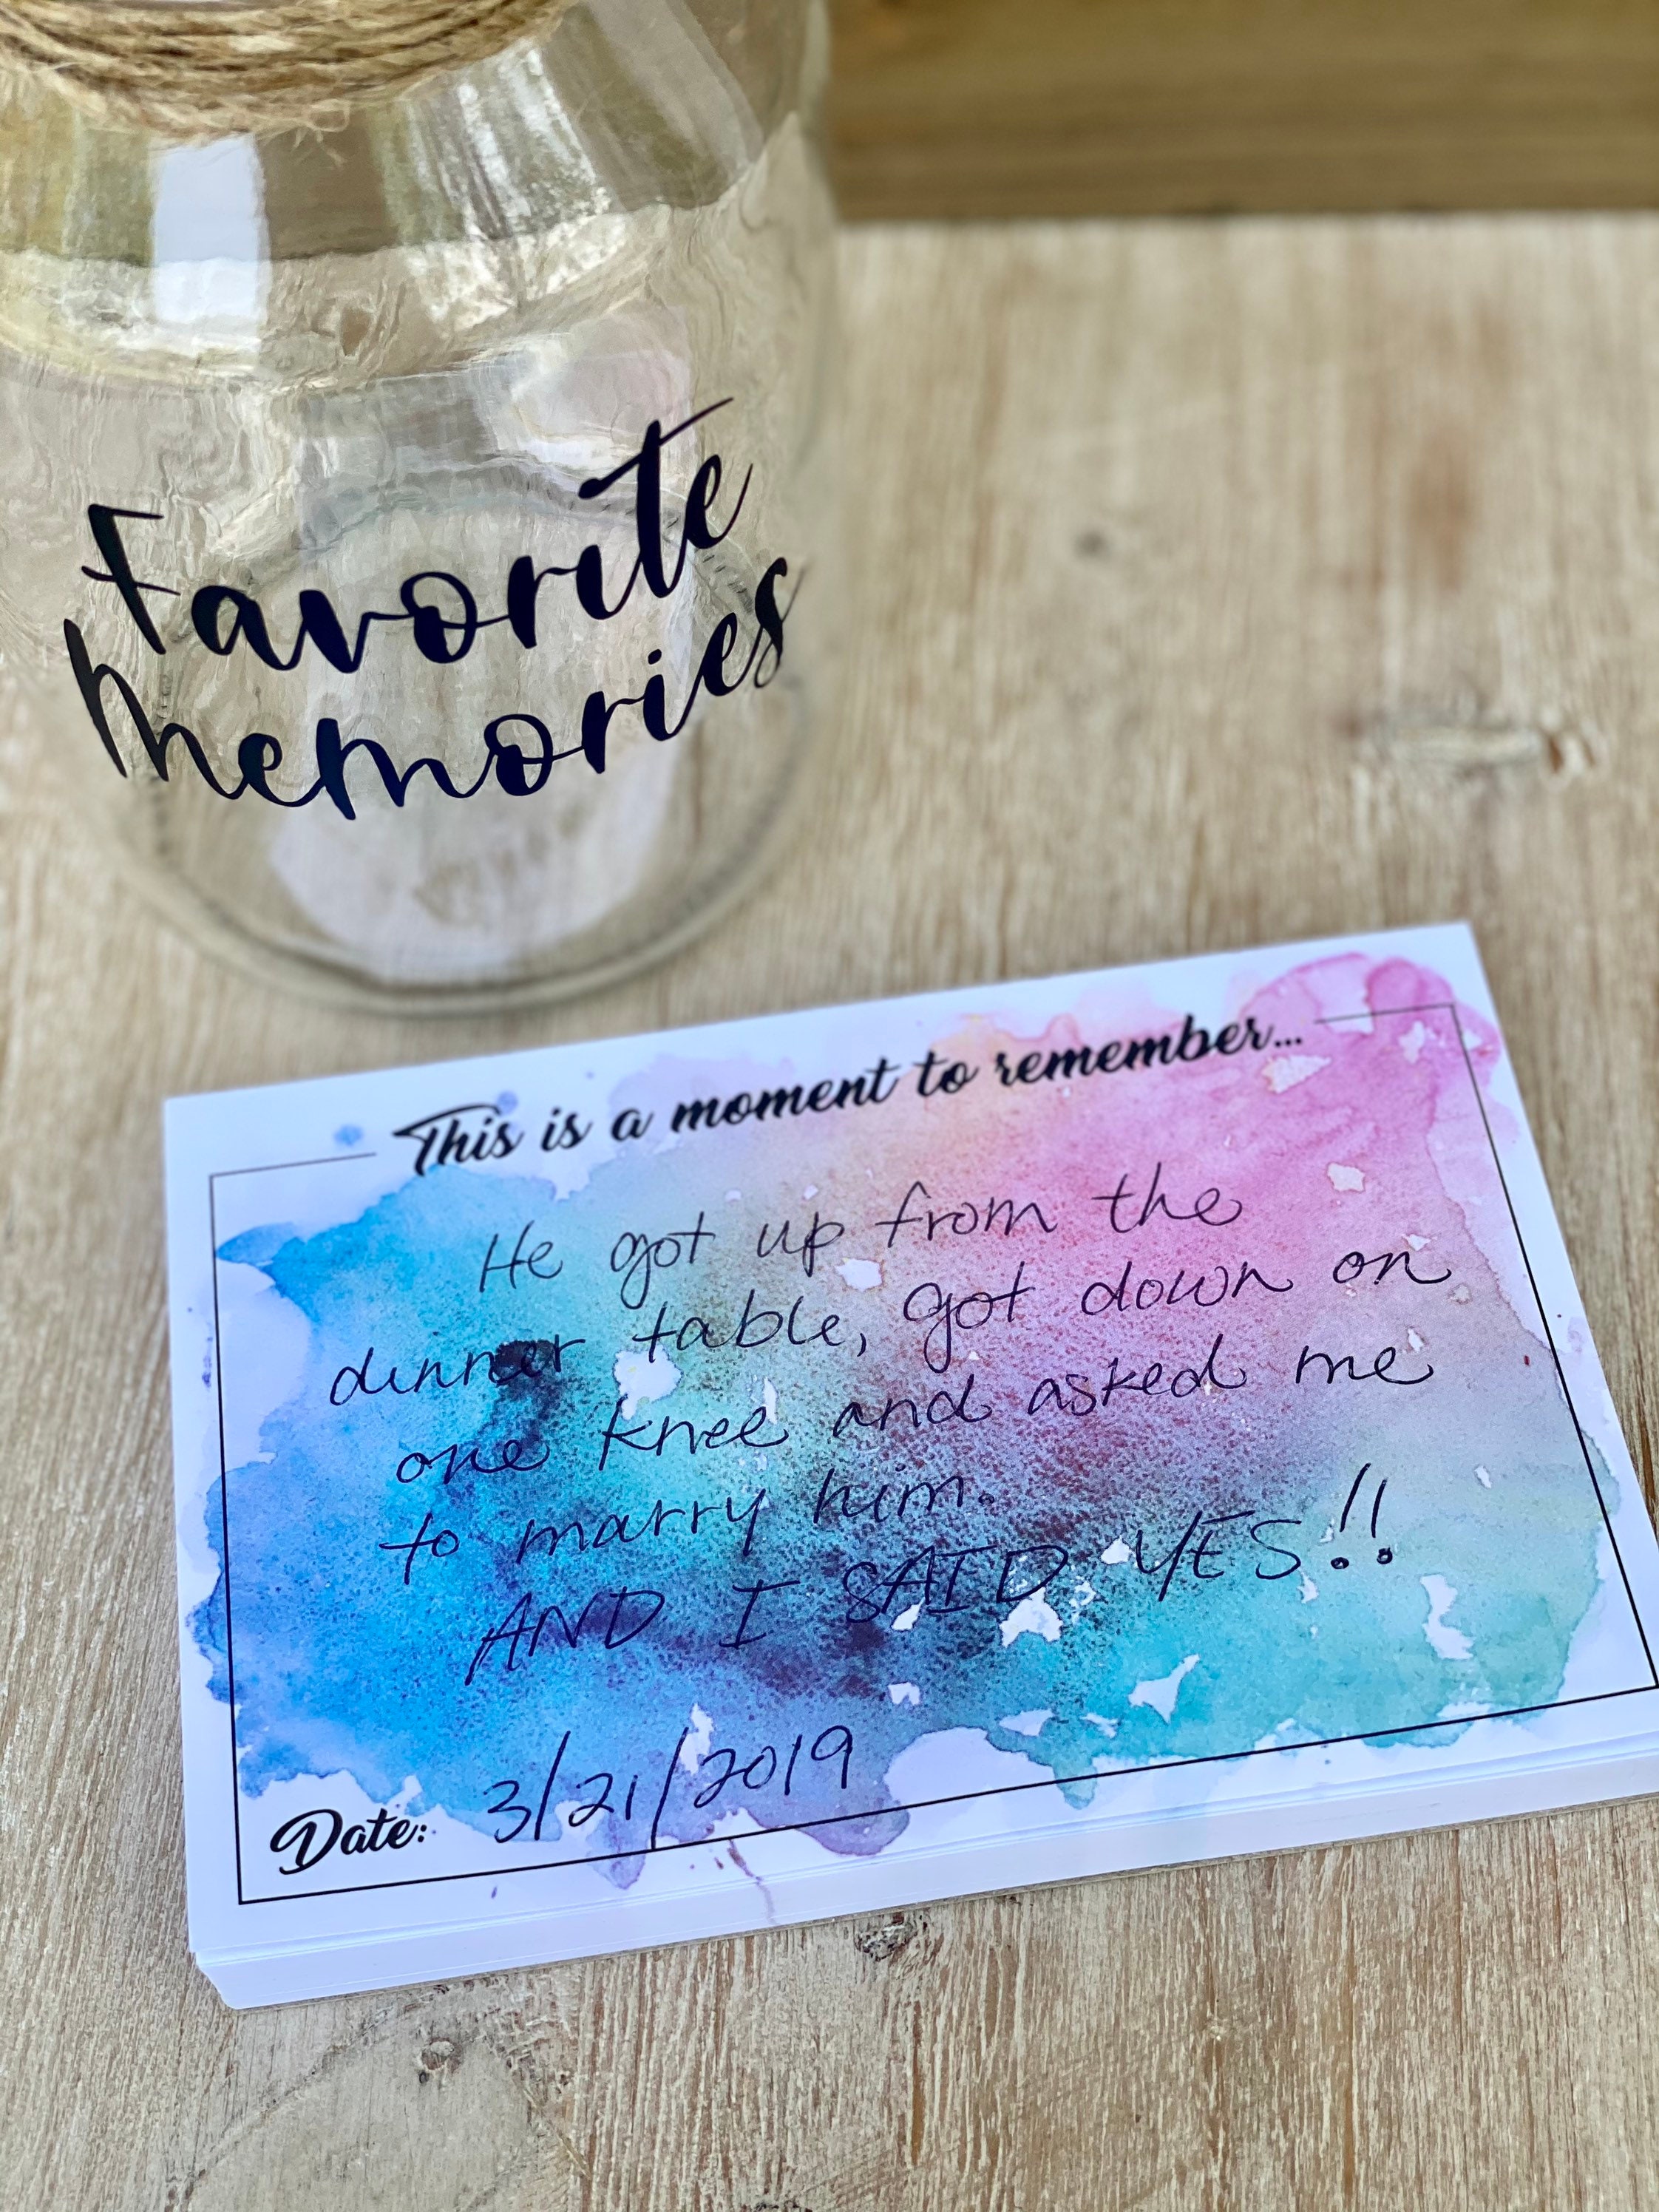 Favorite
Memories
This is a moment to remember...
He got up from the
dinner table, got down on
one knee and asked me
to marry him.
AND I SAID YES!!
Date: 3/21/2019